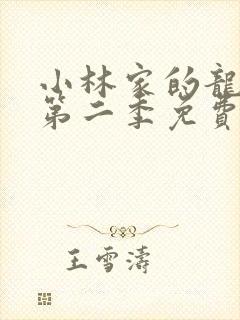 小林家的龍
第二季免費
王雪濤